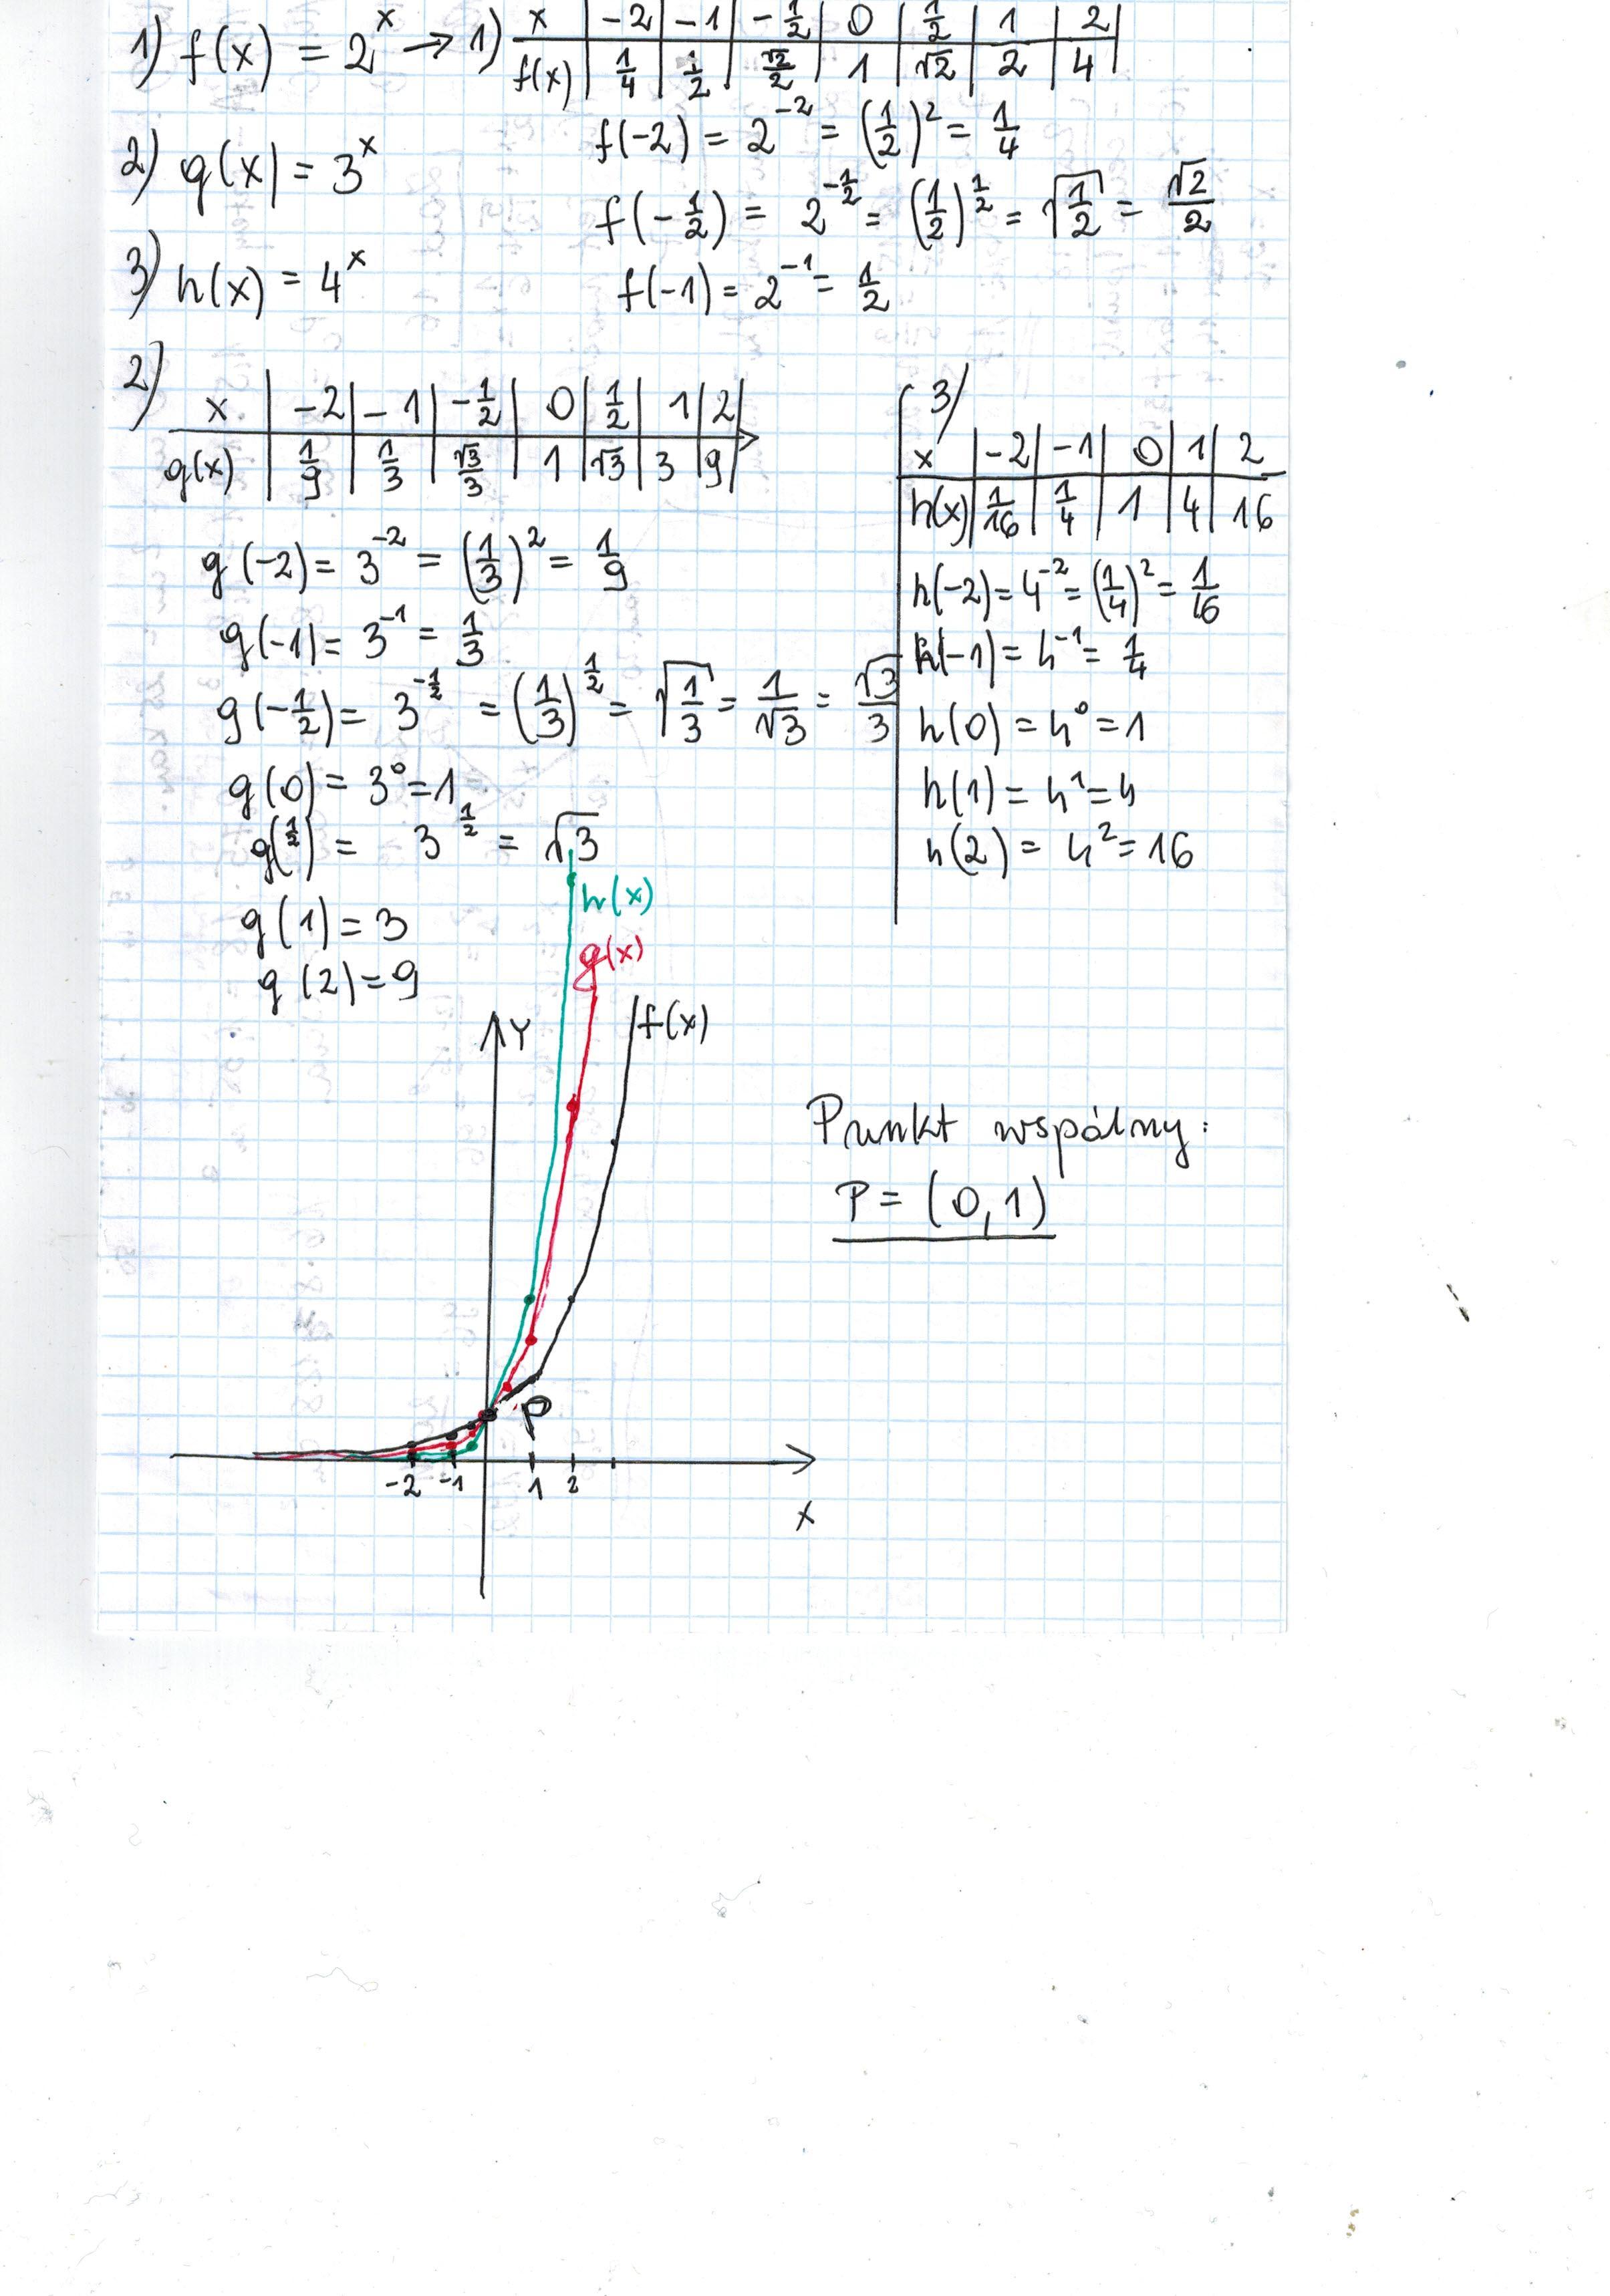 1) f(x) = 2^x → 1) x | -2 | -1 | -1/2 | 0 | 1/2 | 1 | 2 |
f(x) | 1/4 | 1/2 | √2/2 | 1 | √2 | 2 | 4 |
f(-2) = 2^-2 = (1/2)^2 = 1/4
2) g(x) = 3^x
f(-1/2) = 2^-1/2 = (1/2)^1/2 = √1/2 = √2/2
3) h(x) = 4^x
f(-1) = 2^-1 = 1/2
2)
x | -2 | -1 | -1/2 | 0 | 1/2 | 1 | 2 |
g(x) | 1/9 | 1/3 | √3/3 | 1 | √3 | 3 | 9 |
g(-2) = 3^-2 = (1/3)^2 = 1/9
g(-1) = 3^-1 = 1/3
g(-1/2) = 3^-1/2 = (1/3)^1/2 = √1/3 = 1/√3 = √3/3
g(0) = 3^0 = 1
g(1/2) = 3^1/2 = √3
g(1) = 3
g(2) = 9
3)
x | -2 | -1 | 0 | 1 | 2
h(x) | 1/16 | 1/4 | 1 | 4 | 16
h(-2) = 4^-2 = (1/4)^2 = 1/16
h(-1) = 4^-1 = 1/4
h(0) = 4^0 = 1
h(1) = 4^1 = 4
h(2) = 4^2 = 16
h(x)
g(x)
f(x)
Y
P
-2 -1 1 2
X
Punkt wspólny:
P = (0,1)